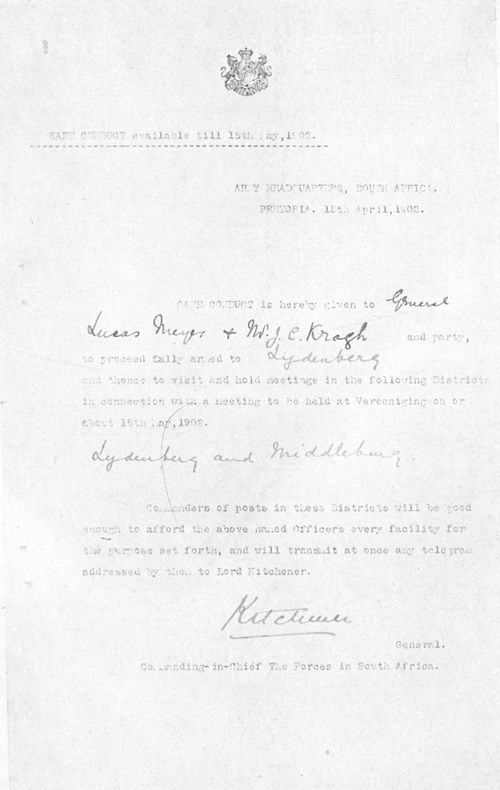 SAFE CONDUCT available till 15th May, 1902.
ARMY HEADQUARTERS, SOUTH AFRICA.
PRETORIA. 18th April, 1902.
SAFE CONDUCT is hereby given to General
Lucas Meyer & Mr. J. C. Krogh and party,
to proceed fully armed to Lydenberg
and thence to visit and hold meetings in the following Districts
in connection with a meeting to be held at Vereeniging on or
about 15th May, 1902.
Lydenberg and Middleburg.
Commanders of posts in these Districts will be good
enough to afford the above named Officers every facility for
the purpose set forth, and will transmit at once any telegram
addressed by them to Lord Kitchener.
Kitchener
General.
Commanding-in-Chief The Forces in South Africa.